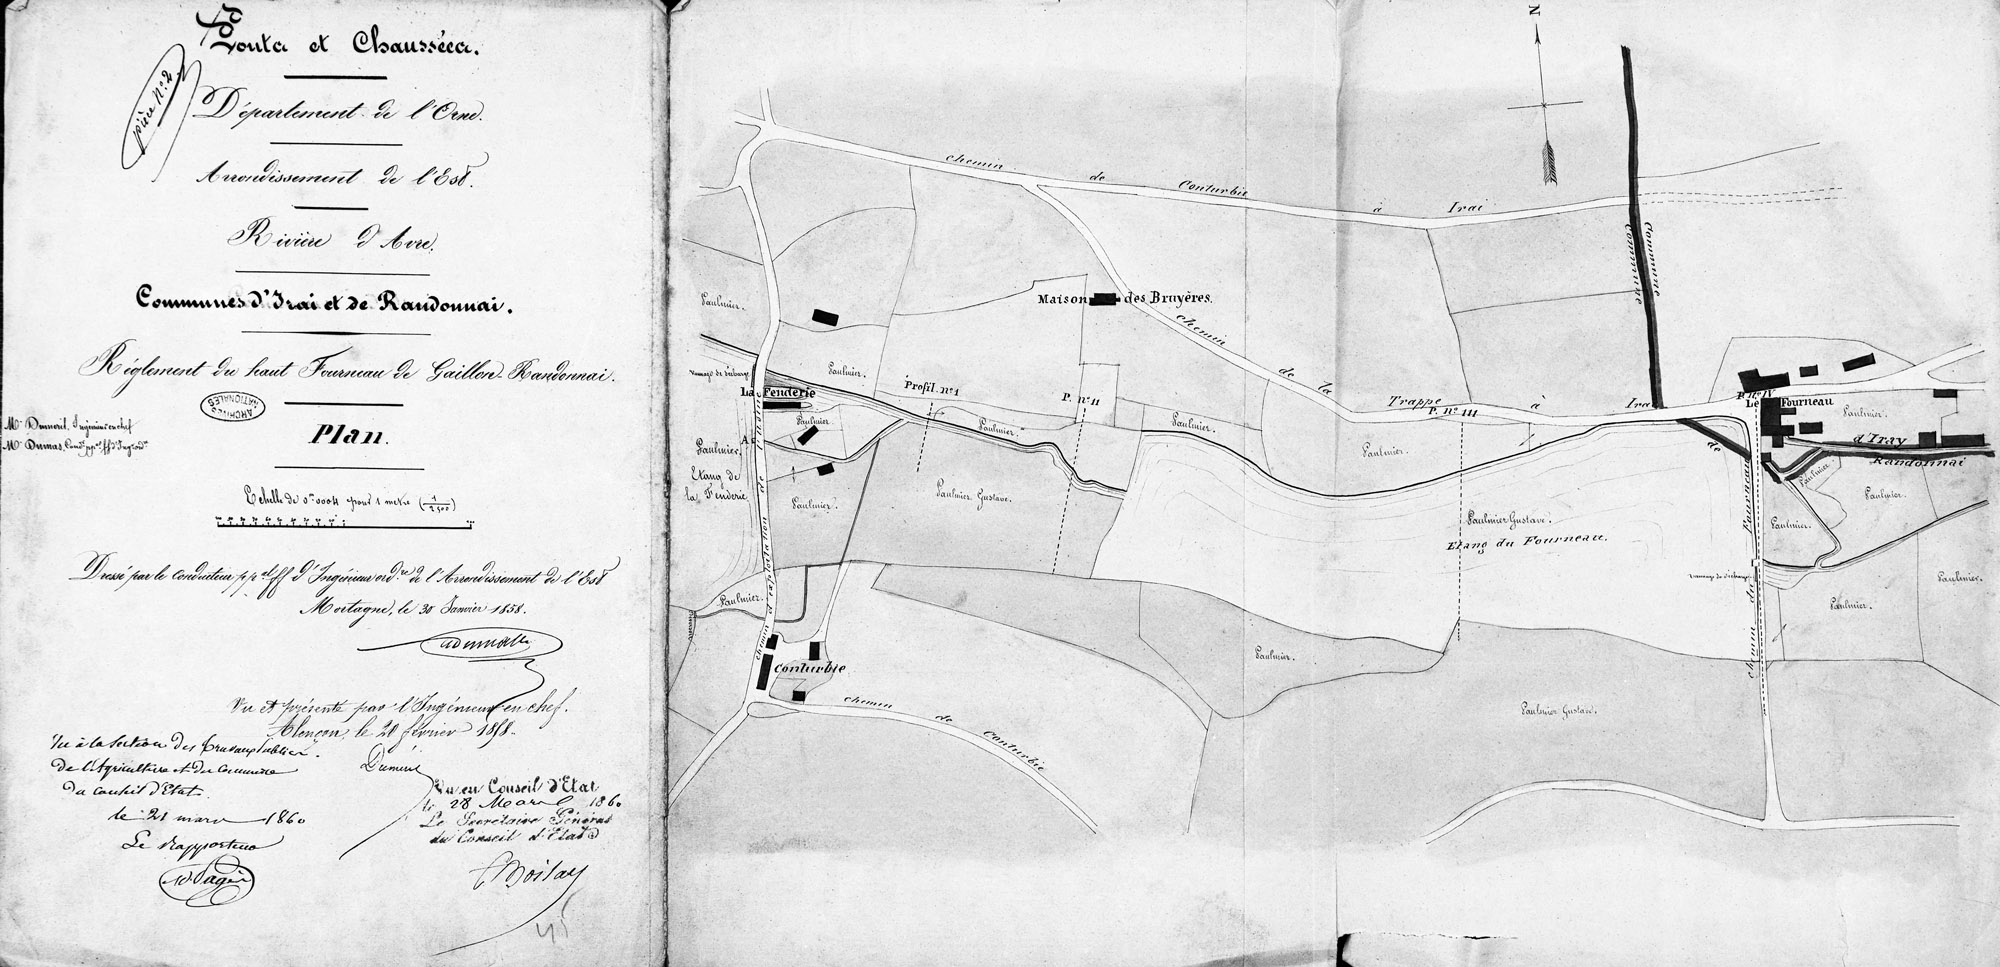 Ponts et Chaussées.
pièce N° 2
Département de l'Orne.
Arrondissement de l'Est.
Rivière d'Avre.
Communes d'Irai et de Randonnai.
Règlement du haut Fourneau de Gaillon-Randonnai.
ARCHIVES NATIONALES
Mr Dumeril, Ingénieur en chef
Mr Dumas, Cond. ppal ff d'Ing. ord.
Plan.
Echelle de 0m 0004 pour 1 mètre (1/2500)
Dressé par le conducteur ppal ff d'Ingénieur ordre de l'Arrondissement de l'Est
Mortagne, le 30 Janvier 1858.
Vu et présenté par l'Ingénieur en chef.
Alençon, le 20 février 1858.
Vu à la Section des travaux publics
de l'Agriculture et du Commerce
du Conseil d'Etat.
le 21 mars 1860
Le Rapporteur
Vu en Conseil d'Etat
le 28 Mars 1860
Le Secrétaire Général
du Conseil d'Etat
45
N
chemin de Conturbie à Irai
Commune
Commune
Maison des Bruyères.
chemin de la Trappe à Irai
Paulmier.
Paulmier.
vannage de décharge
La Fenderie
Profil. n° 1
P. n° II
P. n° III
P. n° IV
Le Fourneau
Paulmier.
Paulmier
Paulmier.
Paulmier.
Paulmier.
A
Paulmier.
Etang de
la Fenderie
d'Iray
de Randonnai
Paulmier
Paulmier.
Paulmier.
Paulmier Gustave.
Paulmier.
Paulmier Gustave.
Etang du Fourneau.
Paulmier.
vannage de décharge
Paulmier.
Paulmier.
Paulmier.
chemin d'exploitation de
chemin du Fourneau
Paulmier.
Conturbie
chemin de Conturbie
Paulmier Gustave.